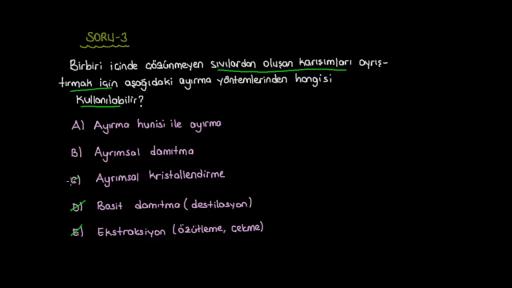 SORU-3
Birbiri içinde çözünmeyen sıvılardan oluşan karışımları ayrış-
tırmak için aşağıdaki ayırma yöntemlerinden hangisi
kullanılabilir?
A) Ayırma hunisi ile ayırma
B) Ayrımsal damıtma
C) Ayrımsal kristallendirme
D) Basit damıtma (destilasyon)
E) Ekstraksiyon (özütleme, çekme)